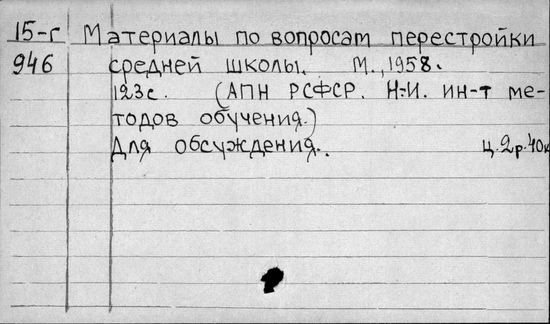 15-г Материалы по вопросам перестройки
946 средней школы. М., 1958.
123с. (АПН РСФСР. Н.-И. ин-т ме-
тодов обучения.)
Для обсуждения. ц. 2р. 40к